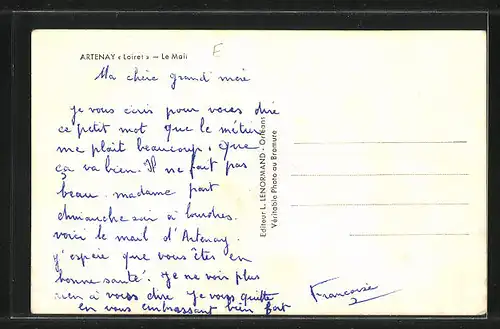 ARTENAY « Loiret » — Le Mail
E
Ma chère grand'mère
je vous écris pour vous dire
ce petit mot que le métier
me plait beaucoup, que
ça va bien. Il ne fait pas
beau. madame part
dimanche soir à lourdes.
voici le mail d'Artenay.
j'espère que vous êtes en
bonne santé. je ne voir plus
rien à vous dire je vous quitte
en vous embrassant bien fort
Françoise
Editeur L. LENORMAND - Orléans
Véritable Photo au Bromure